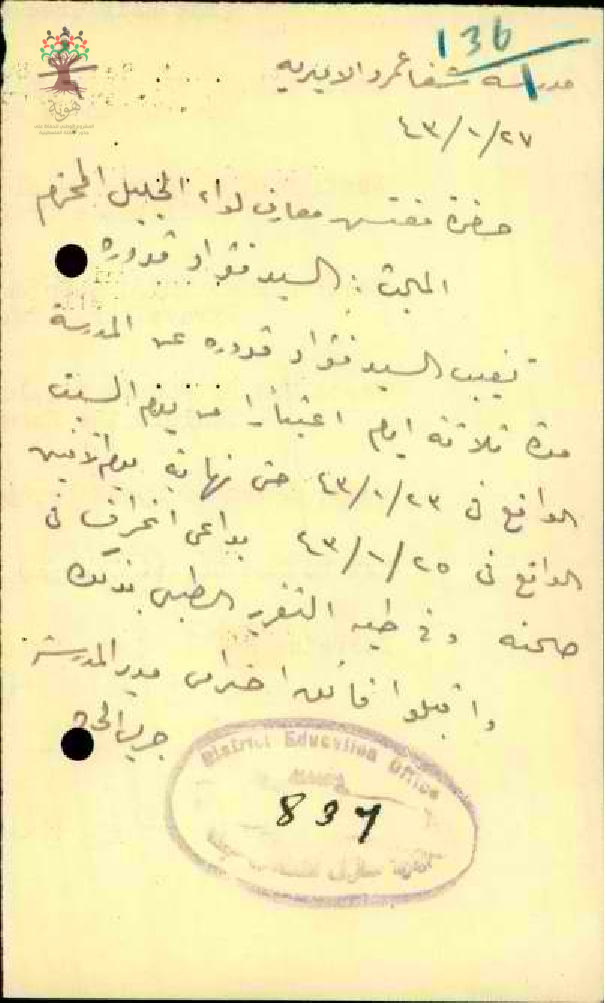 136
مدرسة شفاعمرو الاميرية
٤٣/١/٢٧
حضرة مفتش معارف لواء الجليل المحترم
المبحث : السيد فؤاد قدوره
تغيب السيد فؤاد قدوره عن المدرسة
مدة ثلاثة ايام اعتبارا من يوم السبت
الواقع في ٤٣/١/٢٣ حتى نهاية يوم الاثنين
الواقع في ٤٣/١/٢٥ بداعي انحراف في
صحته وفي طيه التقرير الطبي بذلك
واقبلوا فائق احترامي مدير المدرسة
District Education Office
837
هوية